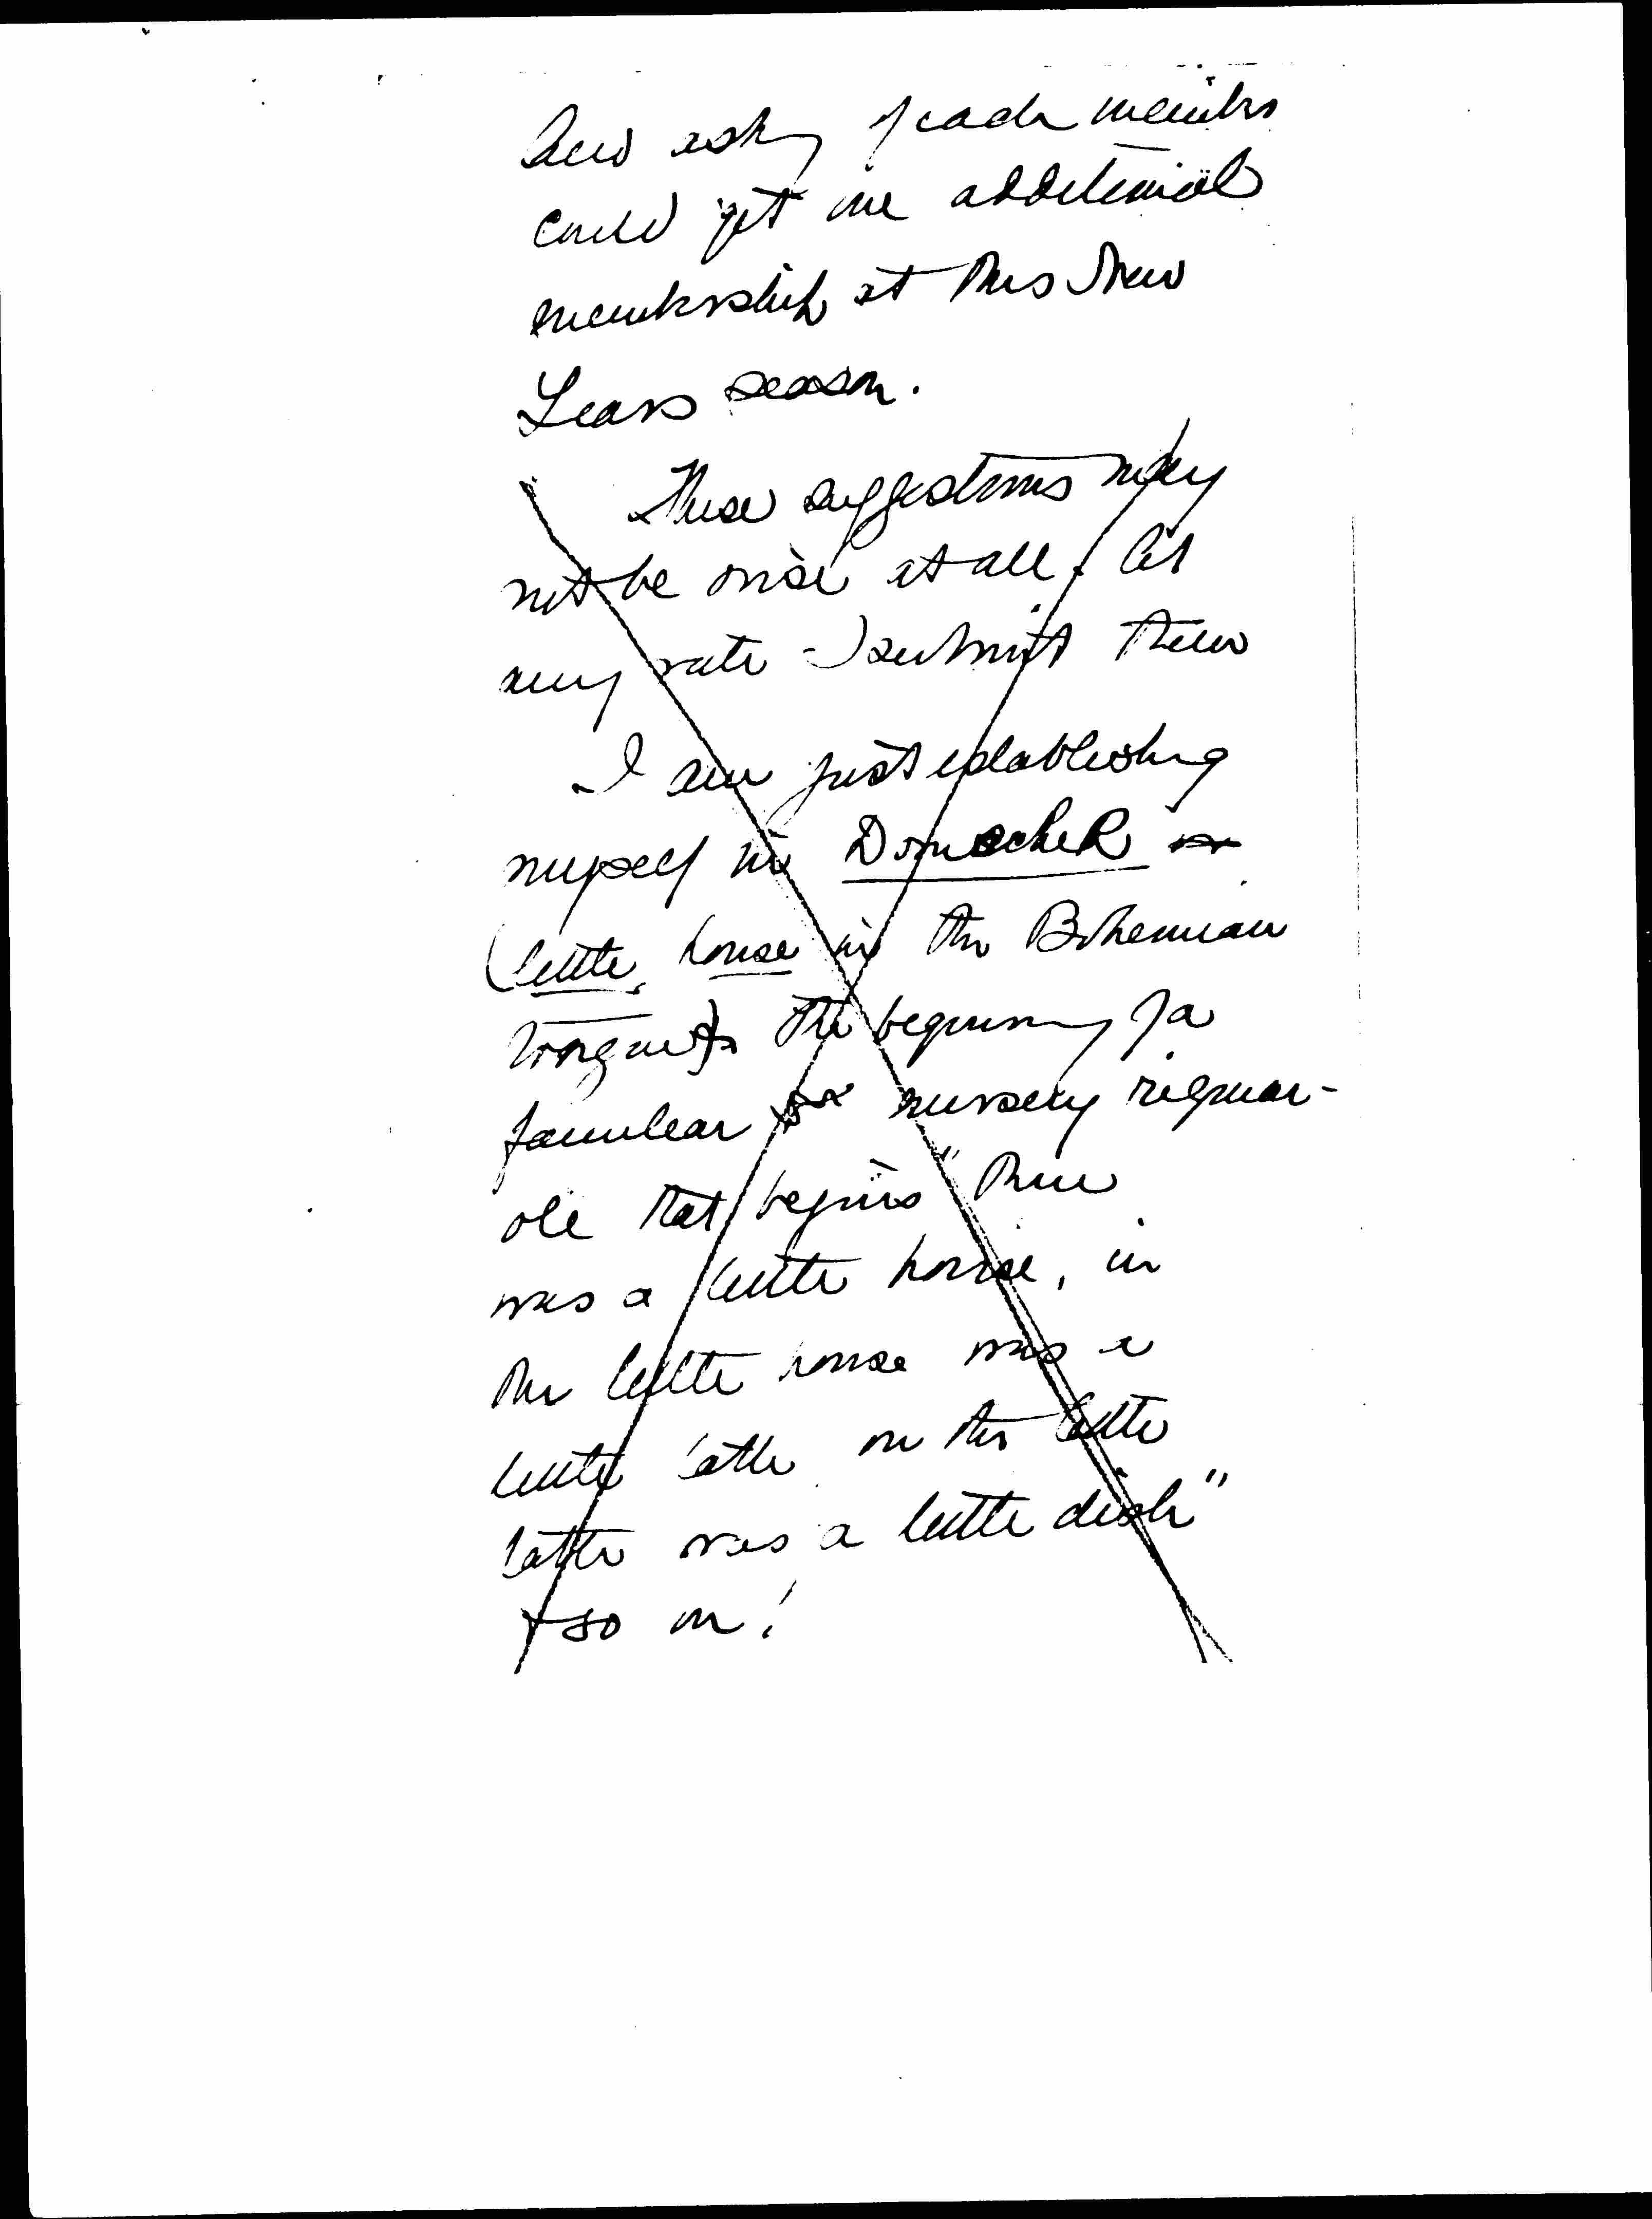 and asking if each member
could get one additional
membership at this New
Years season.
These suggestions may
not be wise at all. At
any rate I submit them
I am just establishing
myself in Domachek
(little house in the Bohemian
tongue) the beginning of a
familiar nursery rigmar-
ole that begins "There
was a little house, in
the little house was a
little table on the little
table was a little dish"
& so on!